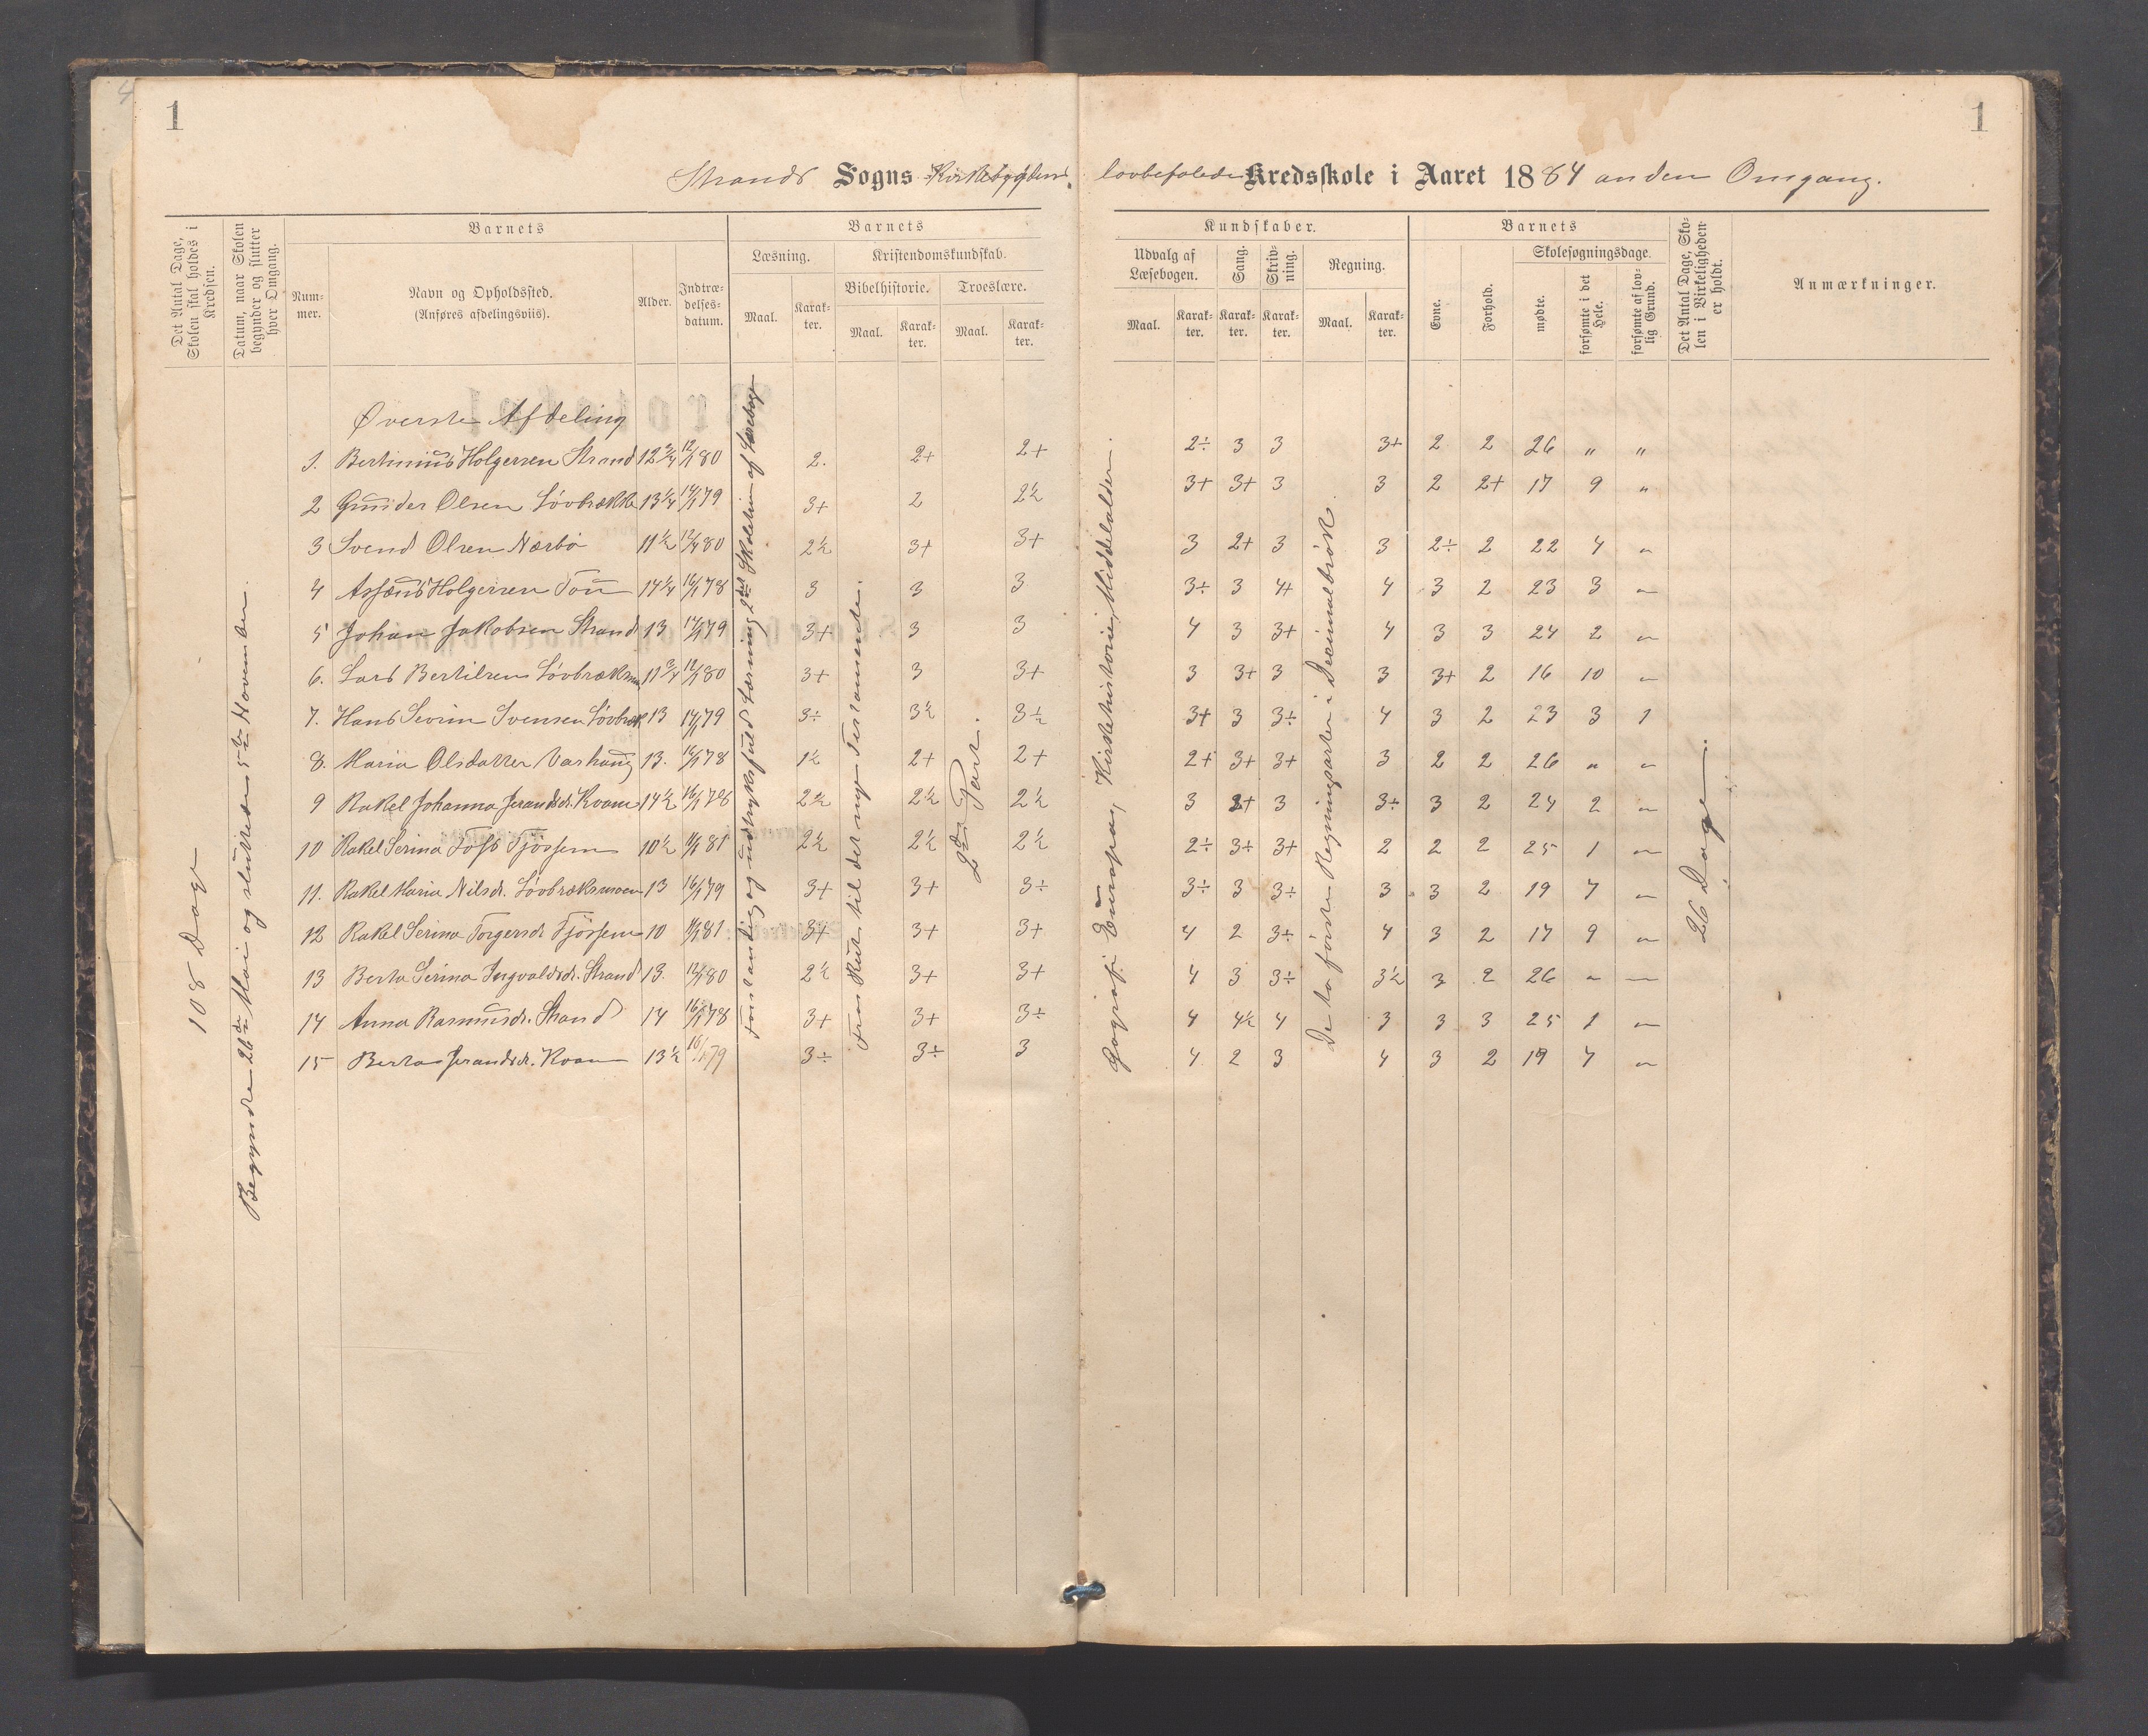 1
1
Strands Sogns Kirkebygdens lovbefalede Kredsskole i Aaret 1884 anden Omgang.
Det Antal Dage, Skolen skal holdes i Kredsen.
Datum, naar Skolen begynder og slutter hver Omgang.
Barnets
Num-mer.
Navn og Opholdssted.
(Anføres afdelingsviis).
Alder.
Indtræ-delses-datum.
Barnets
Læsning.
Maal.
Karak-ter.
Kristendomskundskab.
Bibelhistorie.
Maal.
Karak-ter.
Troeslære.
Maal.
Karak-ter.
Kundskaber.
Udvalg af Læsebogen.
Maal.
Karak-ter.
Sang.
Karak-ter.
Skriv-ning.
Karak-ter.
Regning.
Maal.
Karak-ter.
Barnets
Evne.
Forhold.
Skolesøgningsdage.
mødte.
forsømte i det Hele.
forsømte af lov-lig Grund.
Det Antal Dage, Sko-len i Virkeligheden er holdt.
Anmærkninger.
108 Dage
Begyndte 26de Mai og sluttede 5te November.
Forstandig og udtryksfuld Læsning 2det Skoletrin af Læsebogen
Fra Rut til det nye Testamente.
2den Part.
Geografi Europa, Kirkehistorie, Middelalder.
De to første Regningsarter i Decimalbrøk
26 Dage
Øverste Afdeling
1. Bertinius Holgersen Strand 12 3/4 12/1 80 2. 2+ 2+ 2÷ 3 3 3+ 2 2 26 " "
2 Gunder Olsen Løvbrække 13 1/4 14/1 79 3+ 2 2½ 3+ 3+ 3 3 2 2+ 17 9 "
3 Svend Olsen Nærbø 11½ 12/4 80 2½ 3+ 3+ 3 2+ 3 3 2÷ 2 22 4 "
4 Asfæus Holgersen Tou 14 1/4 16/1 78 3 3 3 3÷ 3 4+ 4 3 2 23 3 "
5 Johan Jakobsen Strand 13 14/1 79 3+ 3 3 4 3 3+ 4 3 3 24 2 "
6. Lars Bertilsen Løvbræksm. 11 3/4 12/1 80 3+ 3 3+ 3 3+ 3 3 3+ 2 16 10 "
7. Hans Severin Svensen Løvbræk 13 14/1 79 3÷ 3½ 3½ 3+ 3 3÷ 4 3 2 23 3 1
8. Maria Olsdatter Vashaug 13. 16/1 78 1½ 2+ 2+ 2+ 3+ 3+ 3 2 2 26 " "
9 Rakel Johanna Jerandsdr. Kvam 14½ 16/1 78 2½ 2½ 2½ 3 2+ 3 3÷ 3 2 24 2 "
10 Rakel Serina Tofts Tjøssem 10½ 11/1 81 2½ 2½ 2½ 2÷ 3÷ 3+ 2 2 2 25 1 "
11. Rakel Maria Nilsdr. Løvbræksmoen 13 16/1 79 3+ 3+ 3÷ 3÷ 3 3÷ 3 3 2 19 7 "
12 Rakel Serina Torgersdr Tjøssem 10 11/1 81 3+ 3+ 3+ 4 2 3÷ 4 3 2 17 9 "
13 Berta Serina Ingvaldsdr. Strand 13. 12/1 80 2½ 3+ 3+ 4 3 3÷ 3½ 3 2 26 " "
14 Anna Rasmusdr. Strand 14 16/1 78 3+ 3+ 3÷ 4 4½ 4 3 3 3 25 1 "
15 Berta Jerandsdr. Kvam 13½ 16/1 79 3÷ 3÷ 3 4 2 3 4 3 2 19 7 "